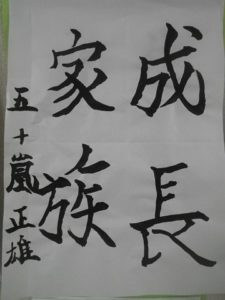 成長
家族
五十嵐正雄